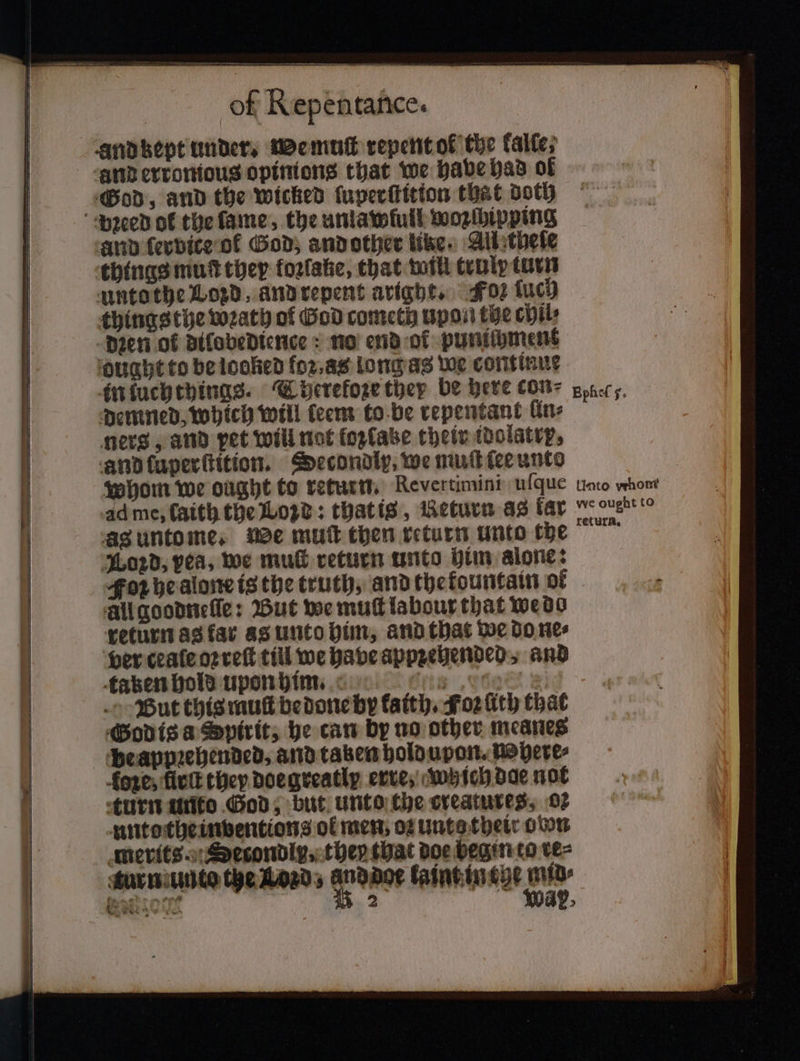 of Repentance.
and kept under. We must repent of the false,
and erronious opinions that we have had of
God, and the wicked superstition that doth
breed of the same, the unlawfull worshipping
and service of God, and other like. All these
things must they forsake, that will truly turn
unto the Lord, and repent aright. For such
things the wrath of God cometh upon the chil-
dren of disobedience: no end of punishment
ought to be looked for, as long as we continue
in such things. Therefore they be here con-
Ephes 5.
demned, which will seem to be repentant sin-
ners, and yet will not forsake their idolatry,
and superstition. Secondly, we must see unto
whom we ought to return. Revertimini usque
Unto whom
ad me, saith the Lord: that is, Return as far
we ought to
as unto me. We must then return unto the
return.
Lord, yea, we must return unto him alone:
For he alone is the truth, and the fountain of
all goodnesse: But we must labour that we do
return as far as unto him, and that we do ne-
ver cease or rest till we have apprehended, and
taken hold upon him.
But this must be done by faith. For sith that
God is a Spirit, he can by no other meanes
be apprehended, and taken hold upon. Where-
fore, first they doe greatly erre, which doe not
turn unto God, but unto the creatures, or
unto the inventions of men, or unto their own
merits. Secondly, they that doe begin to re-
turn unto the Lord, and doe faint in the mid-
B 2
way,